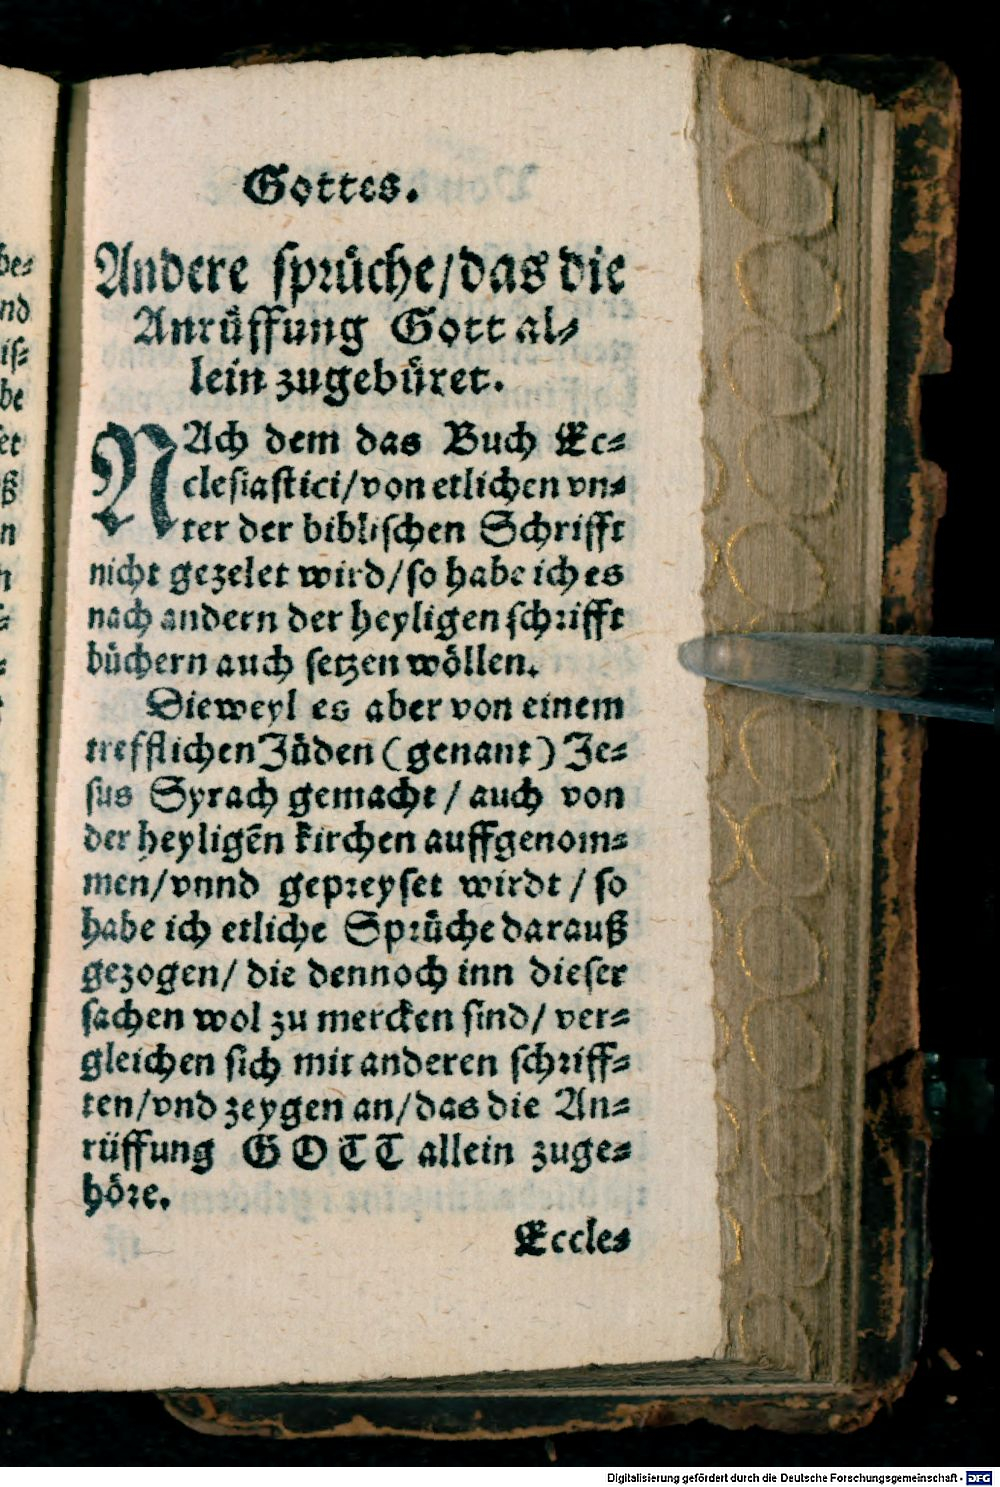 Gottes.
Andere sprüche/das die
Anrüffung Gott al⸗
lein zugebüret.
NAch dem das Buch Ec⸗
clesiastici/von etlichen vn⸗
ter der biblischen Schrifft
nicht gezelet wird/so habe ich es
nach andern der heyligen schrifft
büchern auch setzen wöllen.
Dieweyl es aber von einem
trefflichen Jüden (genant) Je⸗
sus Syrach gemacht / auch von
der heyligẽn kirchen auffgenom⸗
men/vnnd gepreyset wirdt / so
habe ich etliche Sprüche darauß
gezogen/ die dennoch inn dieser
sachen wol zu mercken sind/ ver⸗
gleichen sich mit anderen schriff⸗
ten/vnd zeygen an/das die An⸗
rüffung GOTT allein zuge⸗
höre.
Eccles
be⸗
nd
is⸗
be
et
ß
n
Digitalisierung gefördert durch die Deutsche Forschungsgemeinschaft - DFG